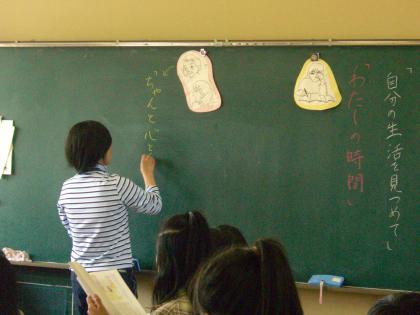 「自分の生活を見つめて」
「わたしの時間」
ど
「ちゃんと心と